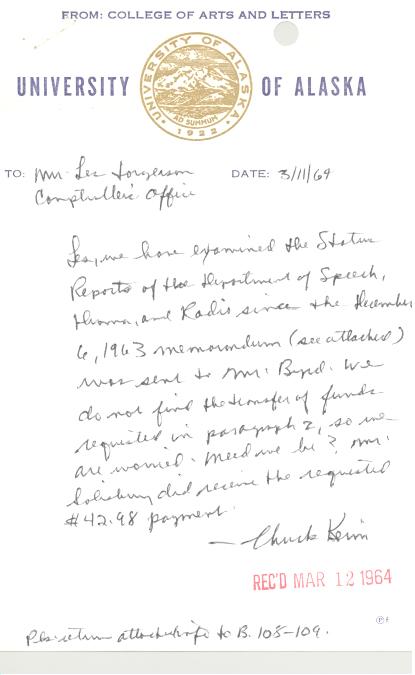 FROM: COLLEGE OF ARTS AND LETTERS
UNIVERSITY OF ALASKA
UNIVERSITY OF ALASKA
AD SUMMUM
1922
TO: Mr. Les Torgerson DATE: 3/11/64
Comptroller's Office
Les, we have examined the Status
Reports of the Department of Speech,
Drama, and Radio since the December
6, 1963 memorandum (see attached)
was sent to Mr. Byrd. We
do not find the transfer of funds
requested in paragraph 2, so we
are worried. Need we be? Mr.
Salisbury did receive the requested
$42.98 payment.
— Chuck Keim
REC'D MAR 12 1964
Pls return attached info to B. 105-109.